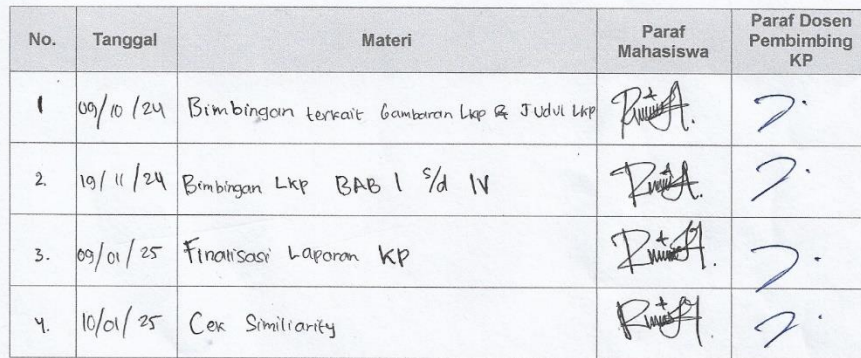 No. Tanggal Materi Paraf Mahasiswa Paraf Dosen Pembimbing KP
1 09/10/24 Bimbingan terkait Gambaran Lkp & Judul Lkp
2. 19/11/24 Bimbingan Lkp BAB I s/d IV
3. 09/01/25 Finalisasi Laporan KP
4. 10/01/25 Cek Similiarity